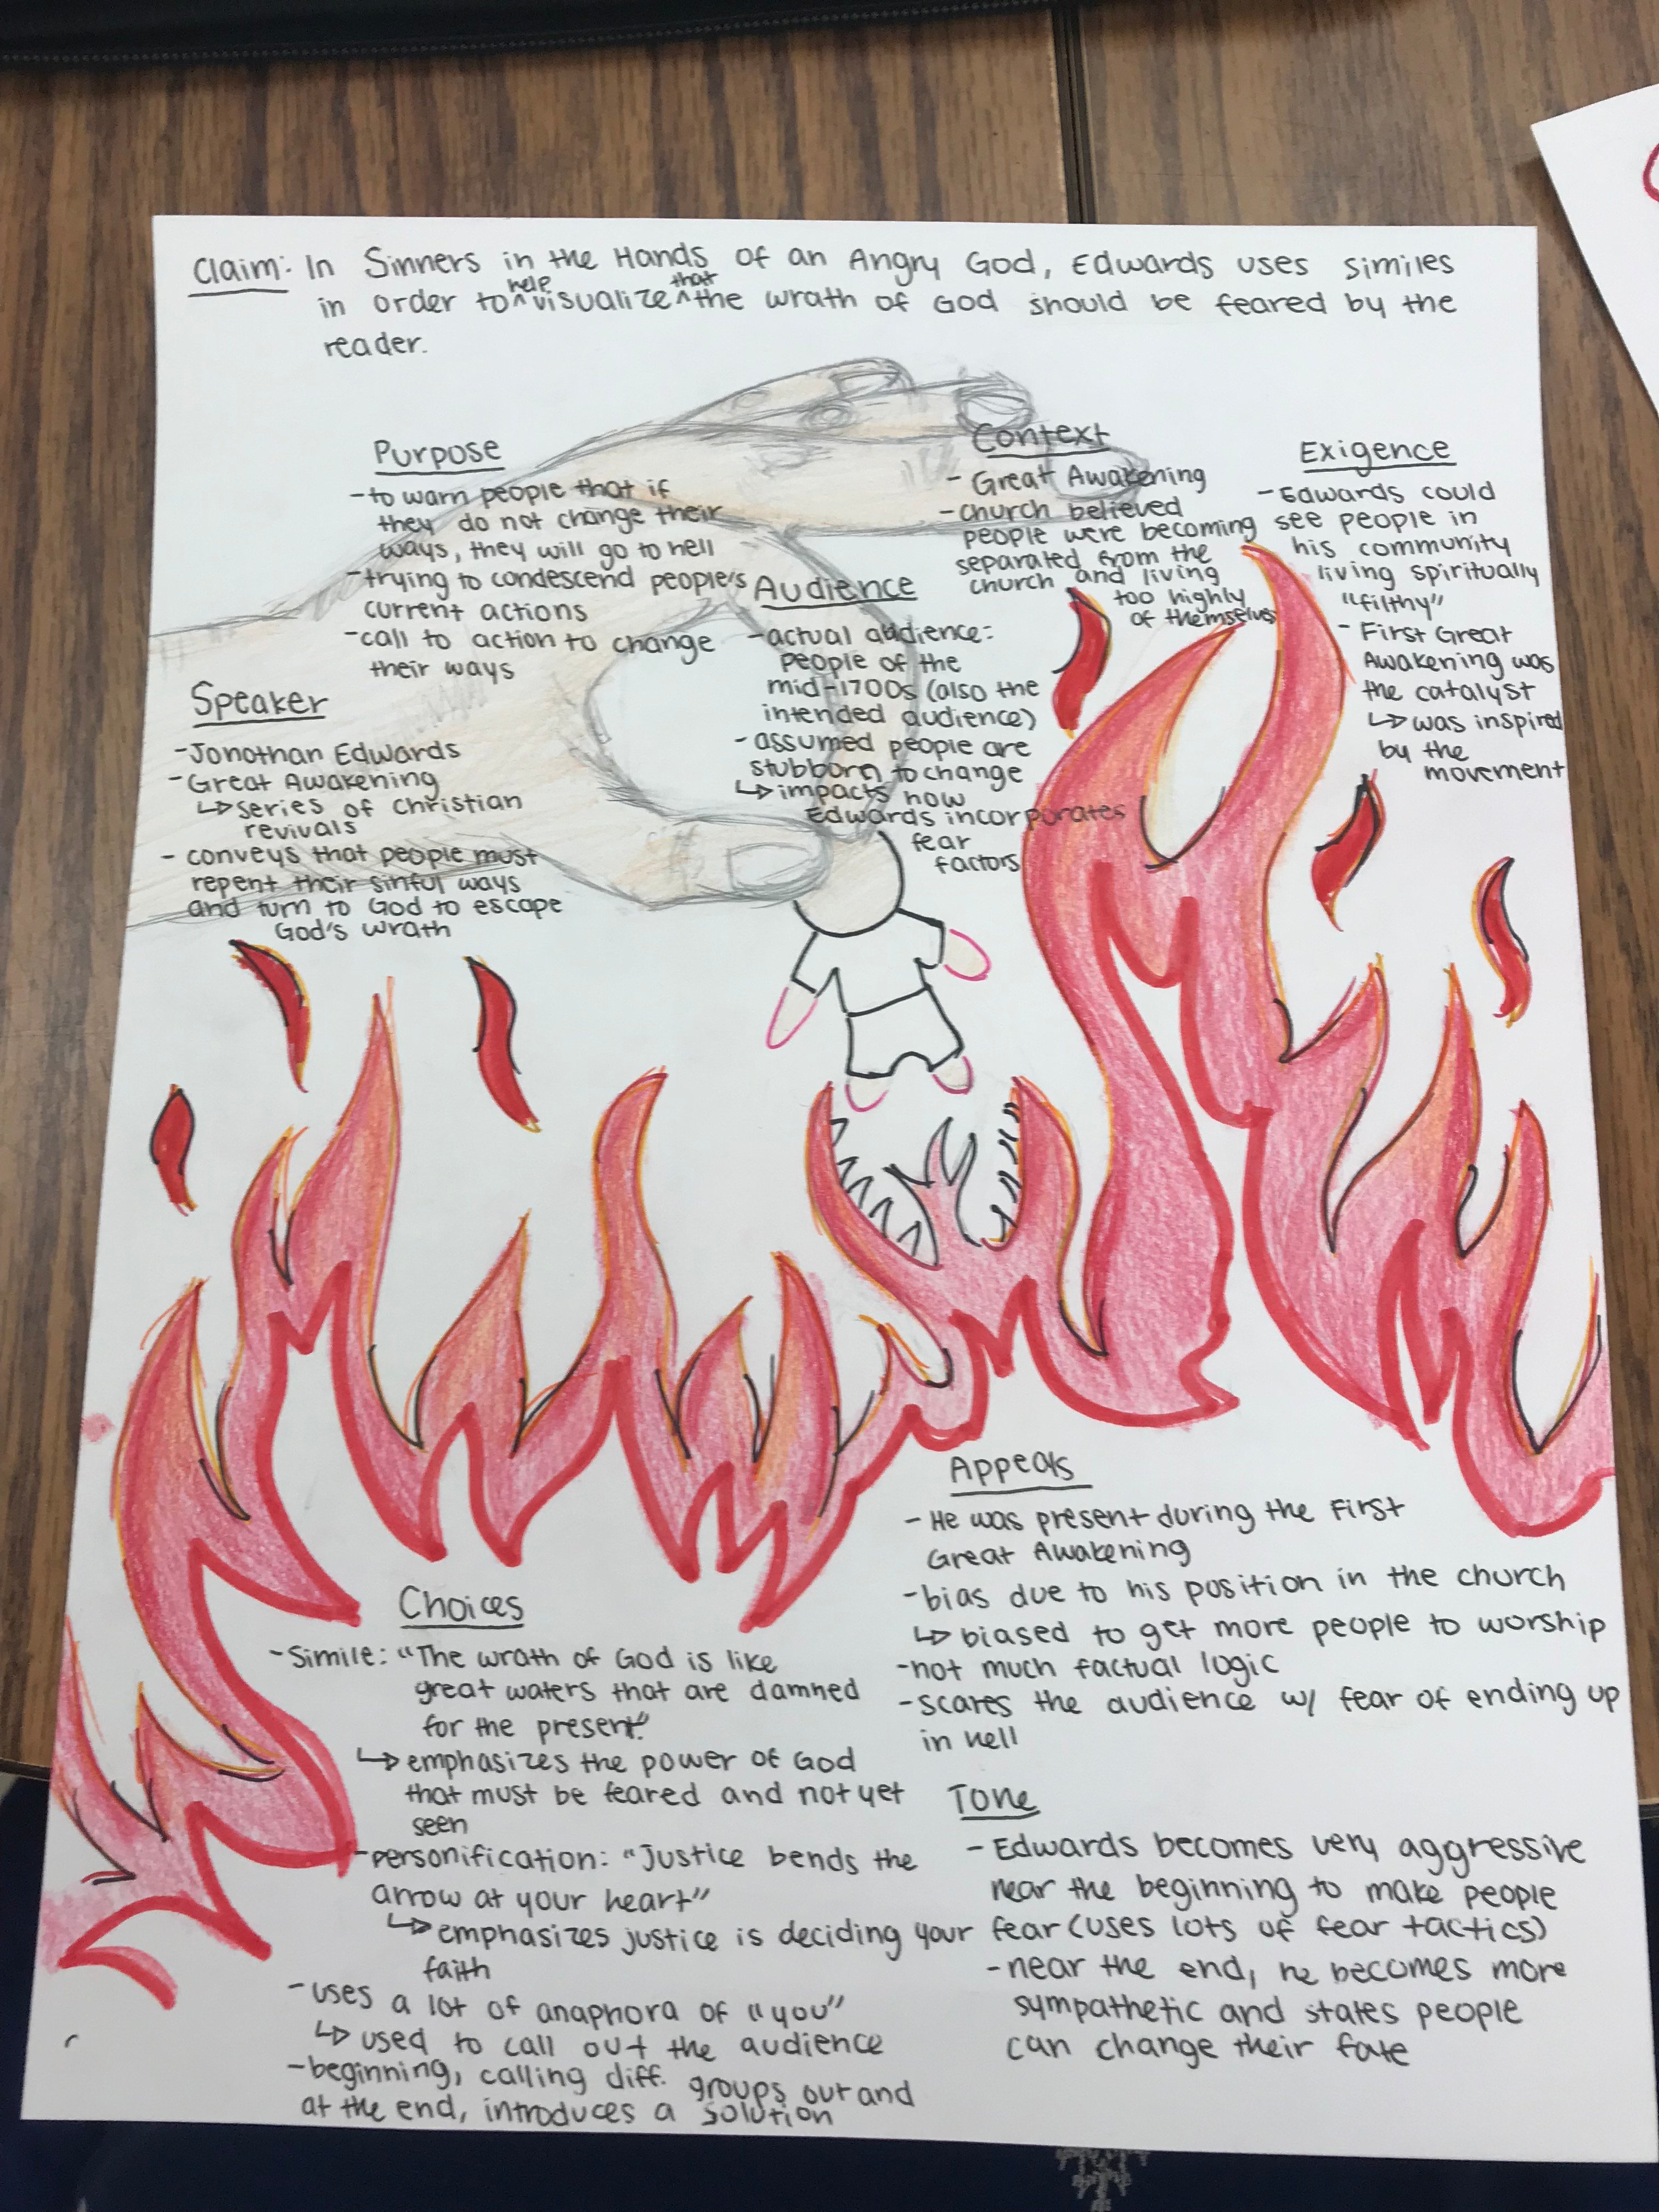 Claim: In Sinners in the Hands of an Angry God, Edwards uses similes
in order to help visualize that the wrath of God should be feared by the
reader.
Purpose
- to warn people that if
they do not change their
ways, they will go to hell
- trying to condescend people's
current actions
- call to action to change
their ways
Speaker
- Jonothan Edwards
- Great Awakening
↳ series of Christian
revivals
- conveys that people must
repent their sinful ways
and turn to God to escape
God's wrath
Audience
- actual audience:
people of the
mid-1700s (also the
intended audience)
- assumed people are
stubborn to change
↳ impacts how
Edwards incorporates
fear
factors
Context
- Great Awakening
- church believed
people were becoming
separated from the
church and living
too highly
of themselves
Exigence
- Edwards could
see people in
his community
living spiritually
"filthy"
- First Great
Awakening was
the catalyst
↳ was inspired
by the
movement
Choices
- Simile: "The wrath of God is like
great waters that are damned
for the present."
↳ emphasizes the power of God
that must be feared and not yet
seen
- personification: "Justice bends the
arrow at your heart"
↳ emphasizes justice is deciding your
faith
- uses a lot of anaphora of "you"
↳ used to call out the audience
- beginning, calling diff. groups out and
at the end, introduces a solution
Appeals
- He was present during the First
Great Awakening
- bias due to his position in the church
↳ biased to get more people to worship
- not much factual logic
- scares the audience w/ fear of ending up
in hell
Tone
- Edwards becomes very aggressive
near the beginning to make people
fear (uses lots of fear tactics)
- near the end, he becomes more
sympathetic and states people
can change their fate